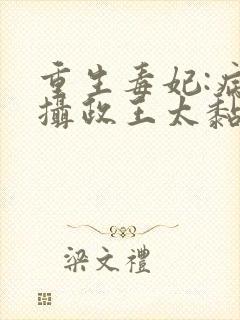 重生毒妃:病
攝政王太黏
梁文禮